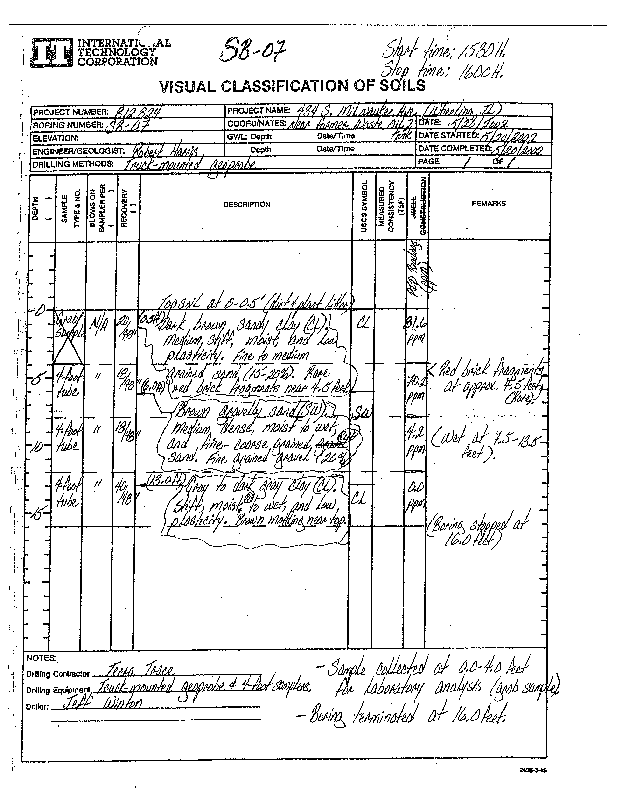 IT INTERNATIONAL
TECHNOLOGY
CORPORATION
SB-07
Start time: 1530H.
Stop time: 1600H.
VISUAL CLASSIFICATION OF SOILS
PROJECT NUMBER: 812824
PROJECT NAME: 434 S. Milwaukee Ave. (Libertyville, IL)
BORING NUMBER: SB-07
COORDINATES: Near Former Waste Oil
DATE: 5/20/2002
ELEVATION:
GWL: Depth Date/Time Tank
DATE STARTED: 5/20/2002
ENGINEER/GEOLOGIST: Robert Harris
Depth Date/Time
DATE COMPLETED: 5/20/2002
DRILLING METHODS: Truck-mounted geoprobe
PAGE 1 OF 1
DEPTH
SAMPLE TYPE & NO.
BLOWS ON SAMPLER PER
RECOVERY
DESCRIPTION
USCS SYMBOL
MEASURED CONSISTENCY (TSF)
WELL CONSTRUCTION
REMARKS
Topsoil at 0-0.5' (dirt & plant litter)
0
Grab sample N/A (0.5ft) Dark, brown, sandy clay (CL). CL 31.6 ppm
Medium, stiff, moist and low
plasticity. Fine to medium
grained sand (15-20%). Rare
red brick fragments near 4.5 feet.
5
4-foot tube " ppm
< Red brick fragments
at approx. 4.5 feet
(Rare).
Brown gravelly sand (SW). SW
Medium, dense, moist to wet,
and, fine-coarse grained,
sand. Fine grained gravel
10
4-foot tube " 4.2 ppm
(Wet at 7.5-13.5
feet).
4-foot tube " (13.0ft) Grey to dark gray clay (CL). CL 0.0 ppm
Stiff, moist to wet, and low,
plasticity. Brown mottling near top.
15
(Boring stopped at
16.0 feet)
NOTES:
Drilling Contractor Terra Trace
Drilling Equipment Truck-mounted geoprobe & 4-foot samplers
Driller: Jeff Winton
- Sample collected at 0.0-4.0 feet
for laboratory analysis (grab sample)
- Boring terminated at 16.0 feet.